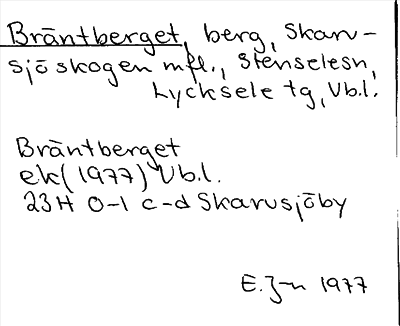 Bräntberget, berg, Skarv-
sjöskogen mfl., Stenselesn,
Lycksele tg, Vb.l.
Bräntberget
ek (1977) Vb.l.
23H 0-1 c-d Skarvsjöby
E. J-n 1977